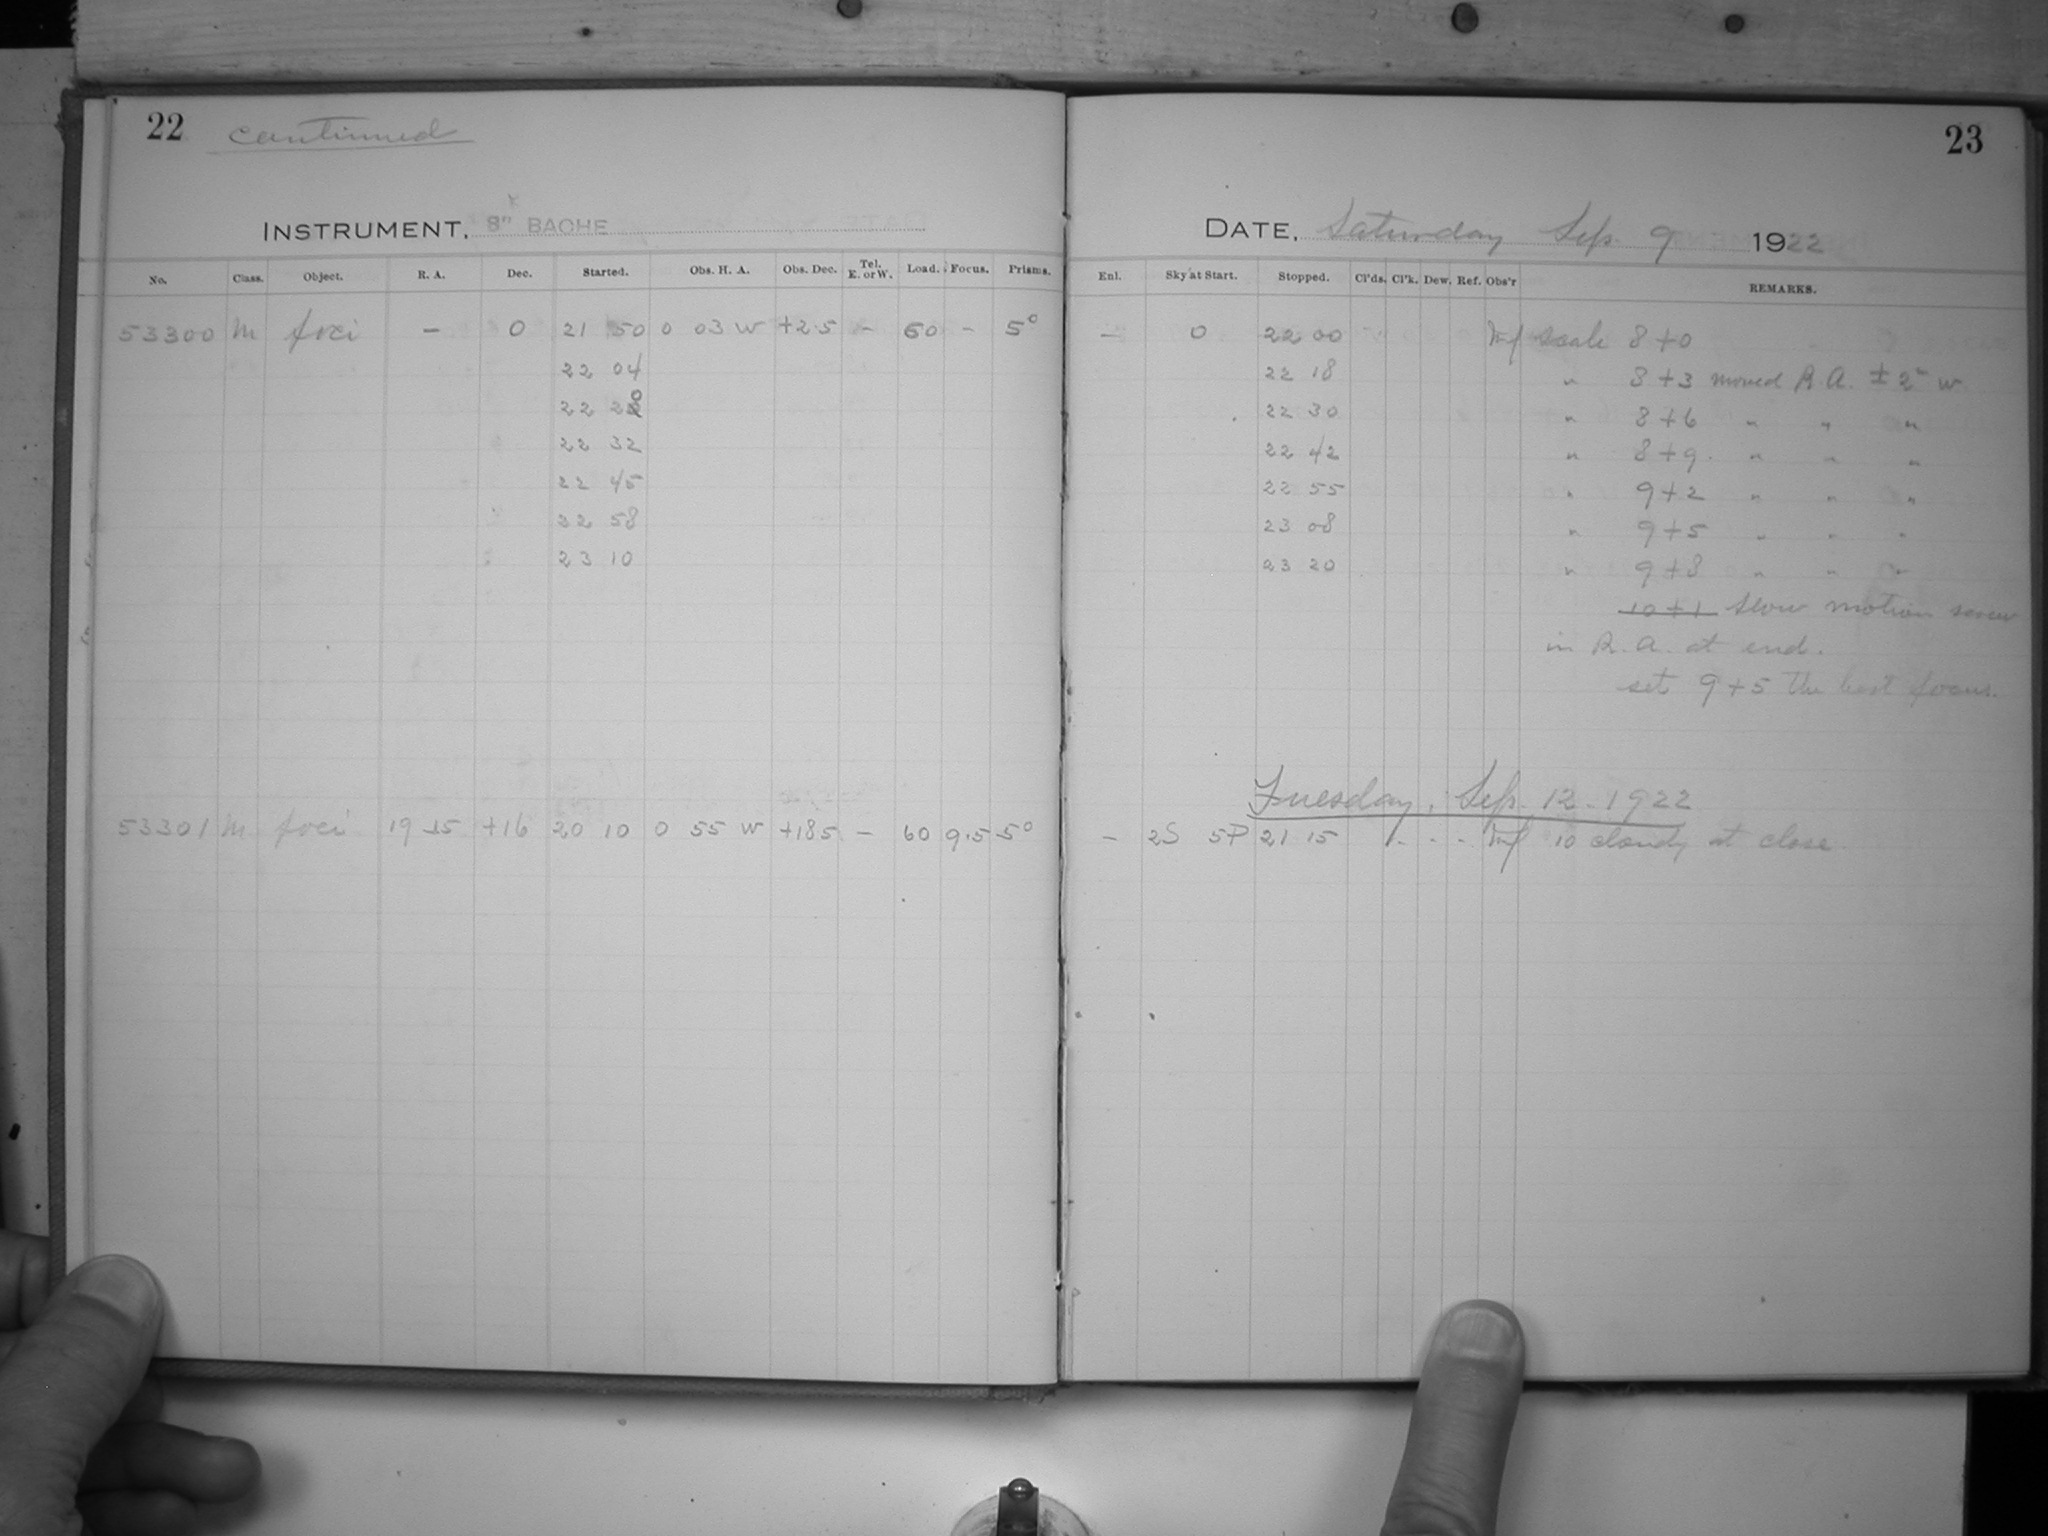 22 continued
23
INSTRUMENT, 8" BACHE
DATE, Saturday Sep. 9 1922
No. Class. Object. R. A. Dec. Started. Obs. H. A. Obs. Dec. Tel. E. or W. Load. Focus. Prisms.
Enl. Sky at Start. Stopped. Cl'ds. Cl'k. Dew. Ref. Obs'r REMARKS.
53300 M foci - 0 21 50 0 03 W +2.5 - 60 - 5° - 0 22 00 scale 8+0
22 04 22 18 " 8+3 moved R.A. ± 2" w
22 20 22 30 " 8+6 " " "
22 32 22 42 " 8+9 " " "
22 45 22 55 " 9+2 " " "
22 58 23 08 " 9+5 " " "
23 10 23 20 " 9+8 " " "
10+1 slow motion screw
in R.A. at end.
set 9+5 the best focus.
Tuesday, Sep. 12. 1922
53301 M foci 19 15 +16 20 10 0 55 W +18.5 - 60 9.5 5° - 2S 5P 21 15 1 - - - 10 cloudy at close.